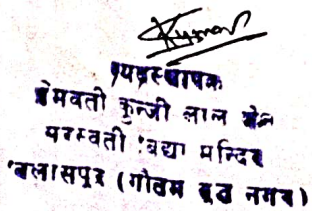 Kumar
व्यवस्थापक
प्रेमवती कुन्जी लाल जैन
सरस्वती विद्या मन्दिर
बिलासपुर (गौतम बुद्ध नगर)